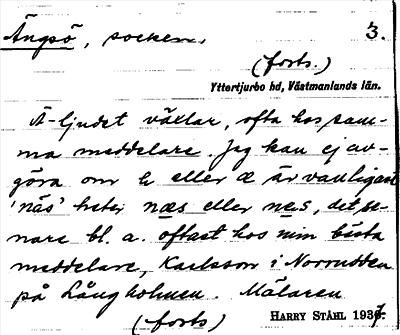 Ängsö, socken. 3.
(forts.)
Yttertjurbo hd, Västmanlands län.
Ä-ljudet växlar, ofta hos sam-
ma meddelare. Jag kan ej av-
göra om e eller æ är vanligast
'näs' heter næs eller nes, det se-
nare bl. a. oftast hos min bästa
meddelare, Karlsson i Norrudden
på Långholmen. Mälaren
(forts) HARRY STÅHL 1937.